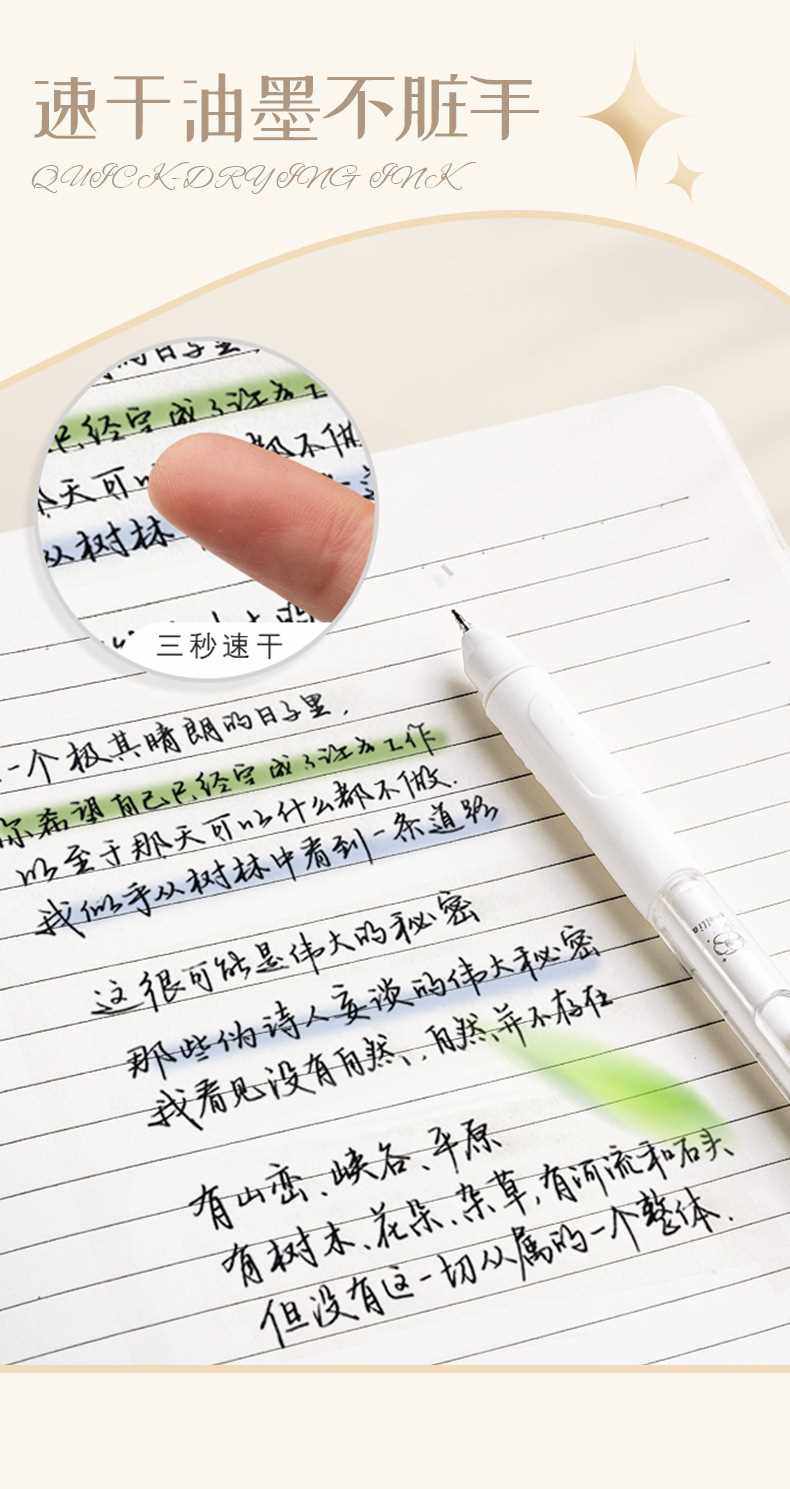 速干油墨不脏手
QUICK-DRYING INK
的日子里
已经完成了许多工
那天可以 都不做
从树林
三秒速干
一个极其晴朗的日子里,
你希望自己已经完成了许多工作
以至于那天可以什么都不做.
我似乎从树林中看到一条道路
这很可能是伟大的秘密
那些伪诗人妄谈的伟大秘密
我看见没有自然、自然并不存在
有山峦、峡谷、平原
有树木、花朵、杂草,有河流和石头
但没有这一切从属的一个整体.